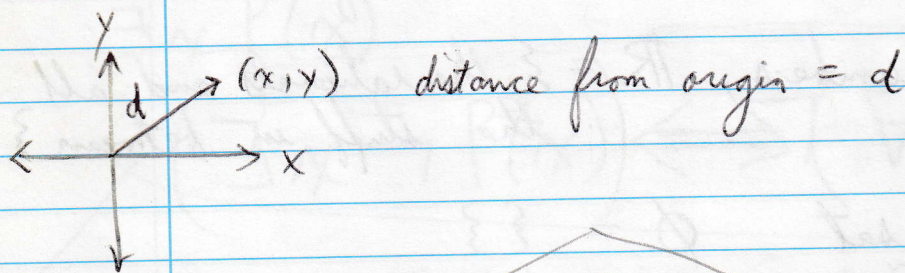 y
(x,y) distance from origin = d
d
x